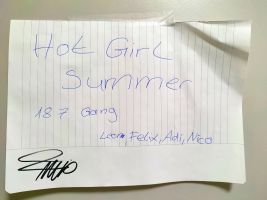 Hot Girl
Summer
187 Gang
Leon, Felix, Adi, Nico